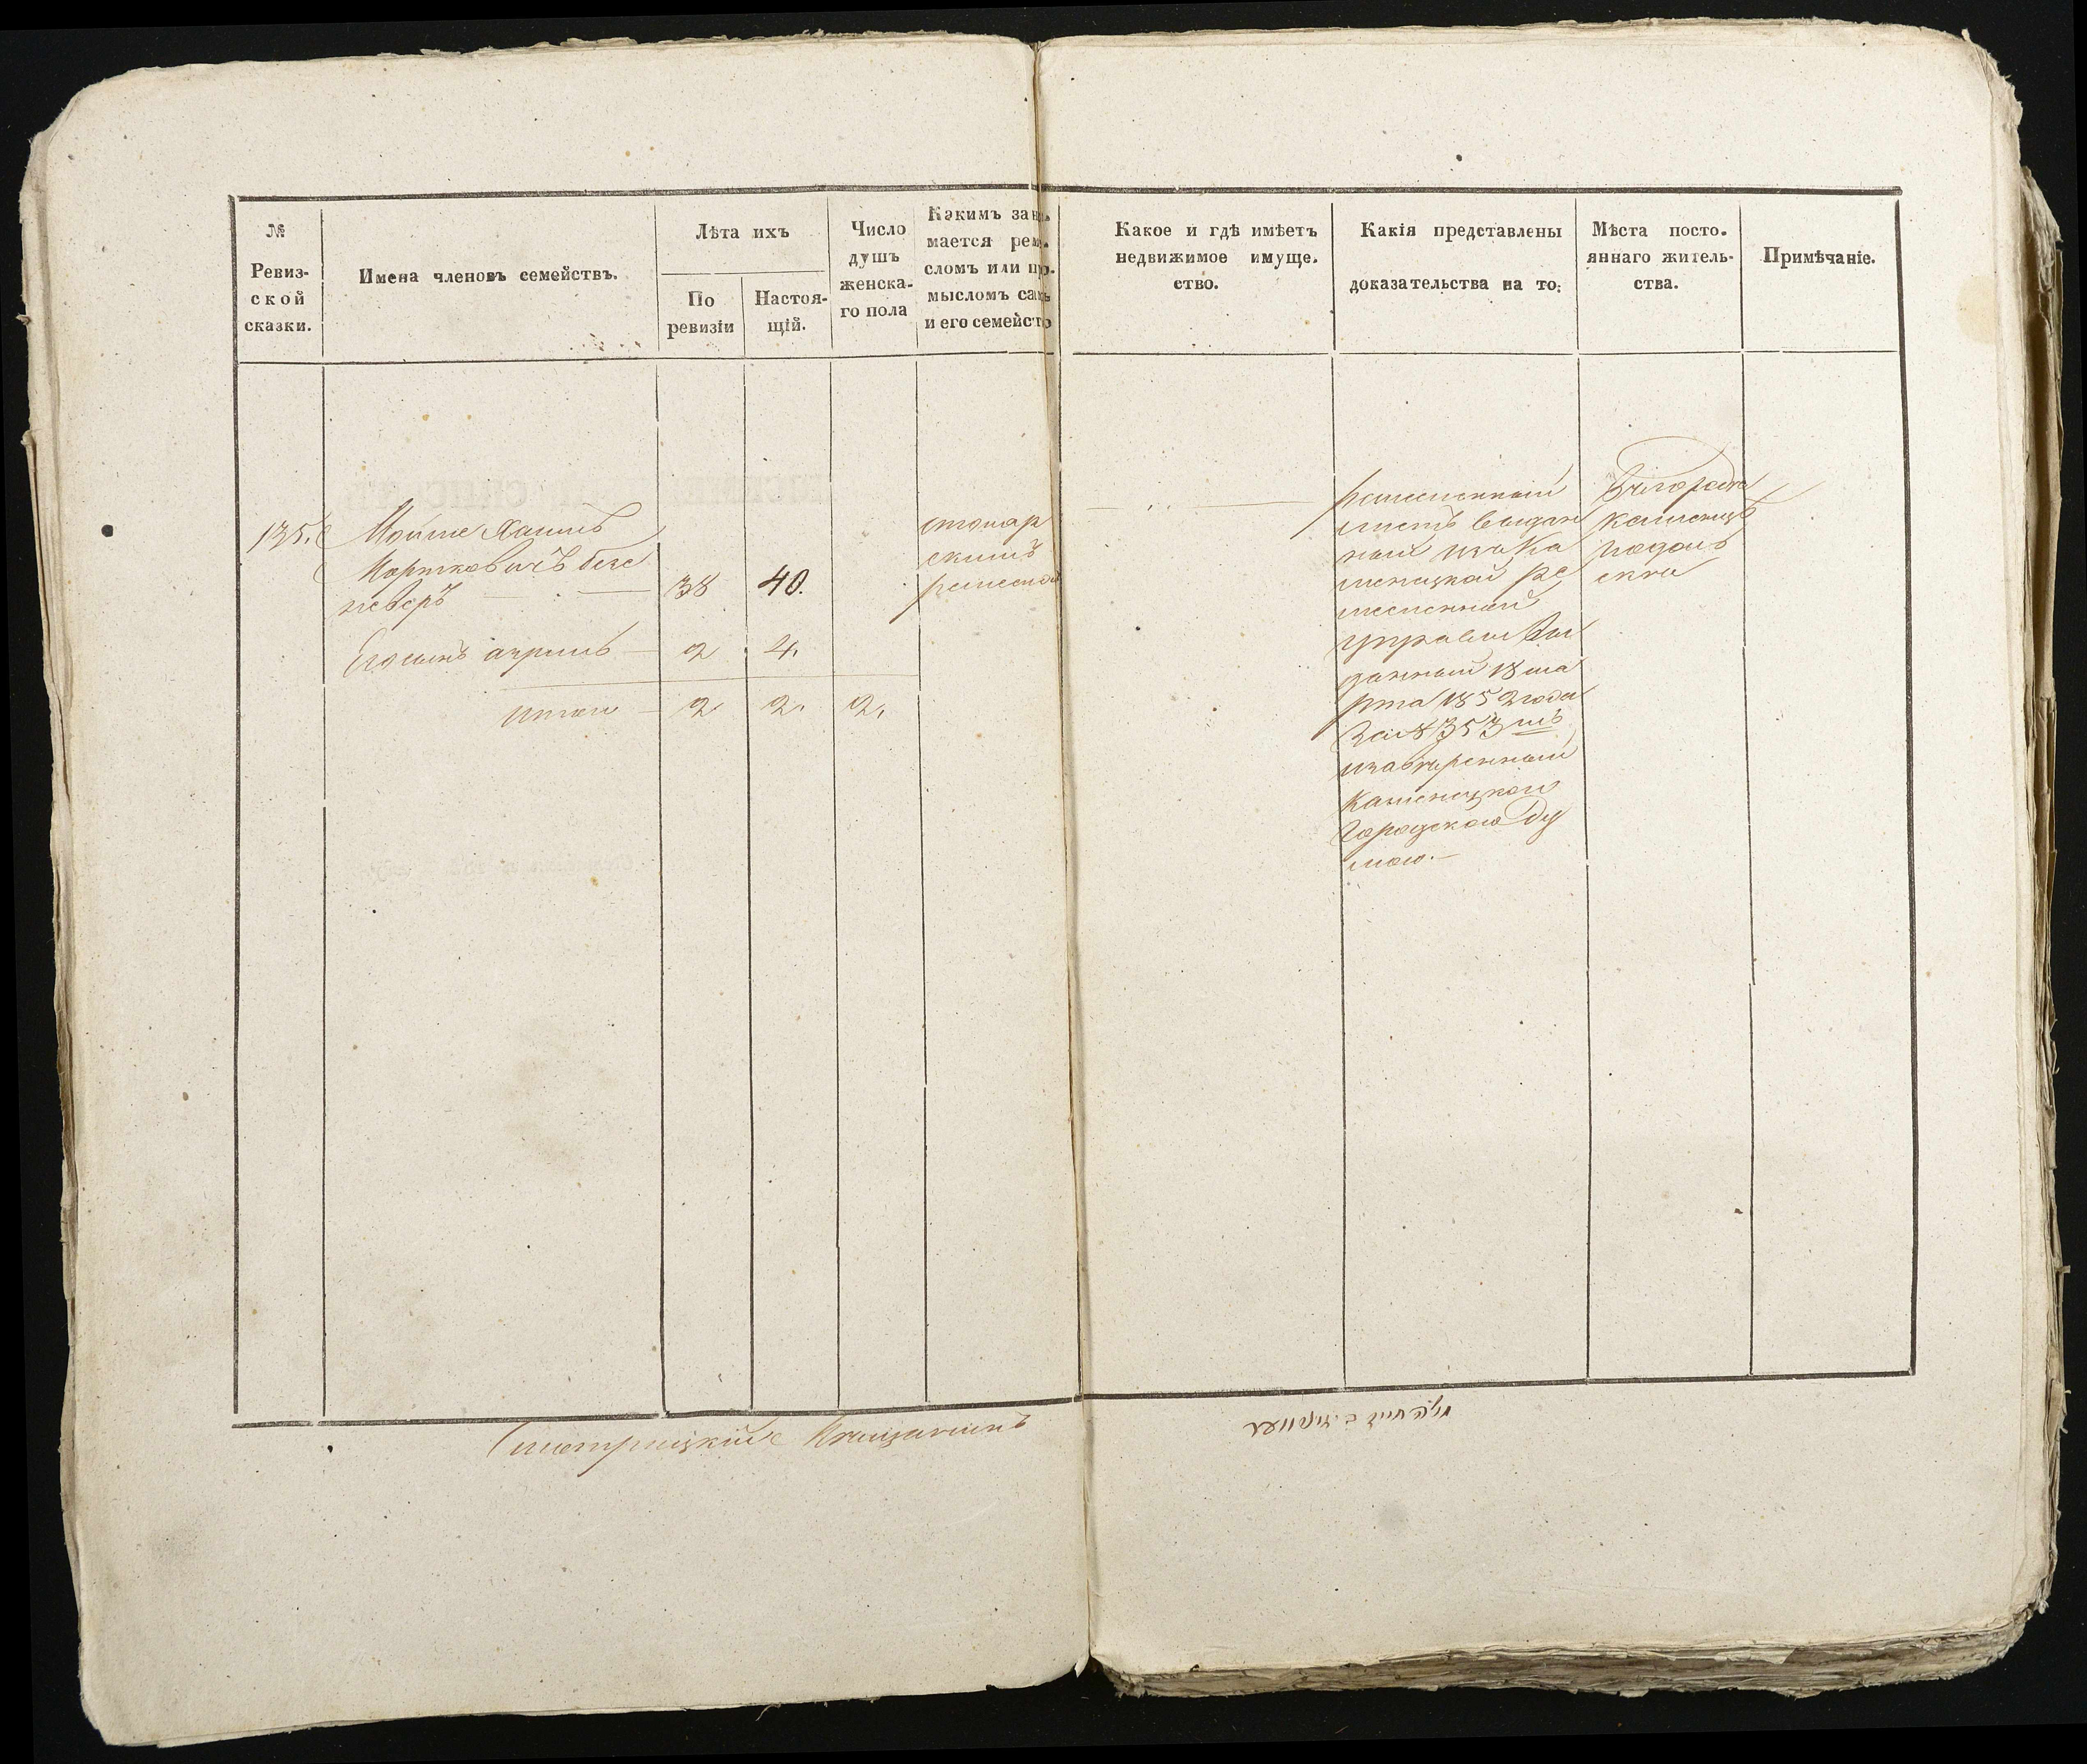 №
Ревиз-
ской
сказки.
Имена членовъ семействъ.
Лѣта ихъ
По
ревизіи
Настоя-
щій.
Число
душъ
женска-
го пола
Какимъ зани-
мается реме-
сломъ или про-
мысломъ самъ
и его семейство
Какое и гдѣ имѣетъ
недвижимое имуще-
ство.
Какія представлены
доказательства на то:
Мѣста посто-
яннаго житель-
ства.
Примѣчаніе.
135.
Мойше Хаимъ
Иорковичъ
38
40.
Его сынъ
2
4.
итого
2
2.
2.
столяр
скимъ
ремесло
ремесленный
листъ выдан
ный изъ Ка
менецкой ре
месленной
управы вы
данный 18 ма
рта 1852 года
За № 353 мъ
Каменецкою
Городскою Ду
мою.
Въ городе
Каменцѣ
Подоль
ске